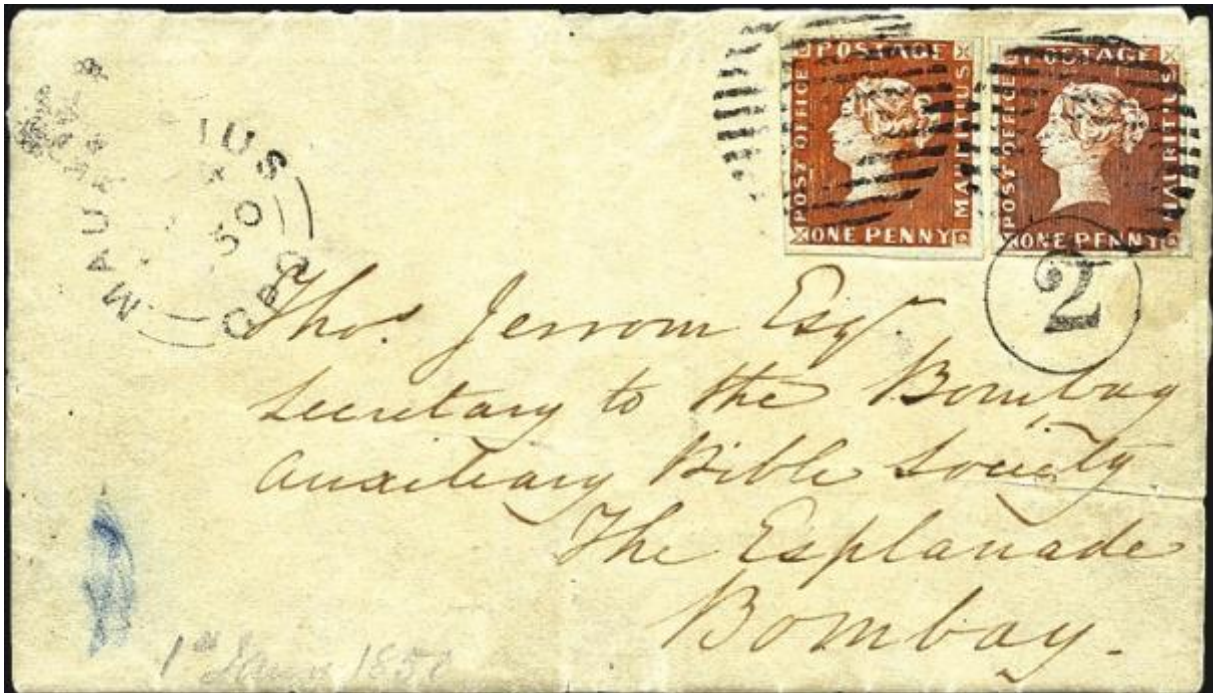 POSTAGE
POST OFFICE
MAURITIUS
ONE PENNY
POSTAGE
POST OFFICE
MAURITIUS
ONE PENNY
MAURITIUS
GPO
2
Thos. Jerrom Esqr.
Secretary to the Bombay
Auxiliary Bible Society
The Esplanade
Bombay.
1850